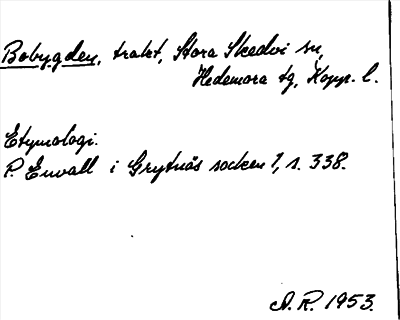 Bobygden, trakt, Stora Skedvi sn,
Hedemora tg, Kopp. l.
Etymologi.
P. Envall i Grytnäs socken 1, s. 338.
A. R. 1953.